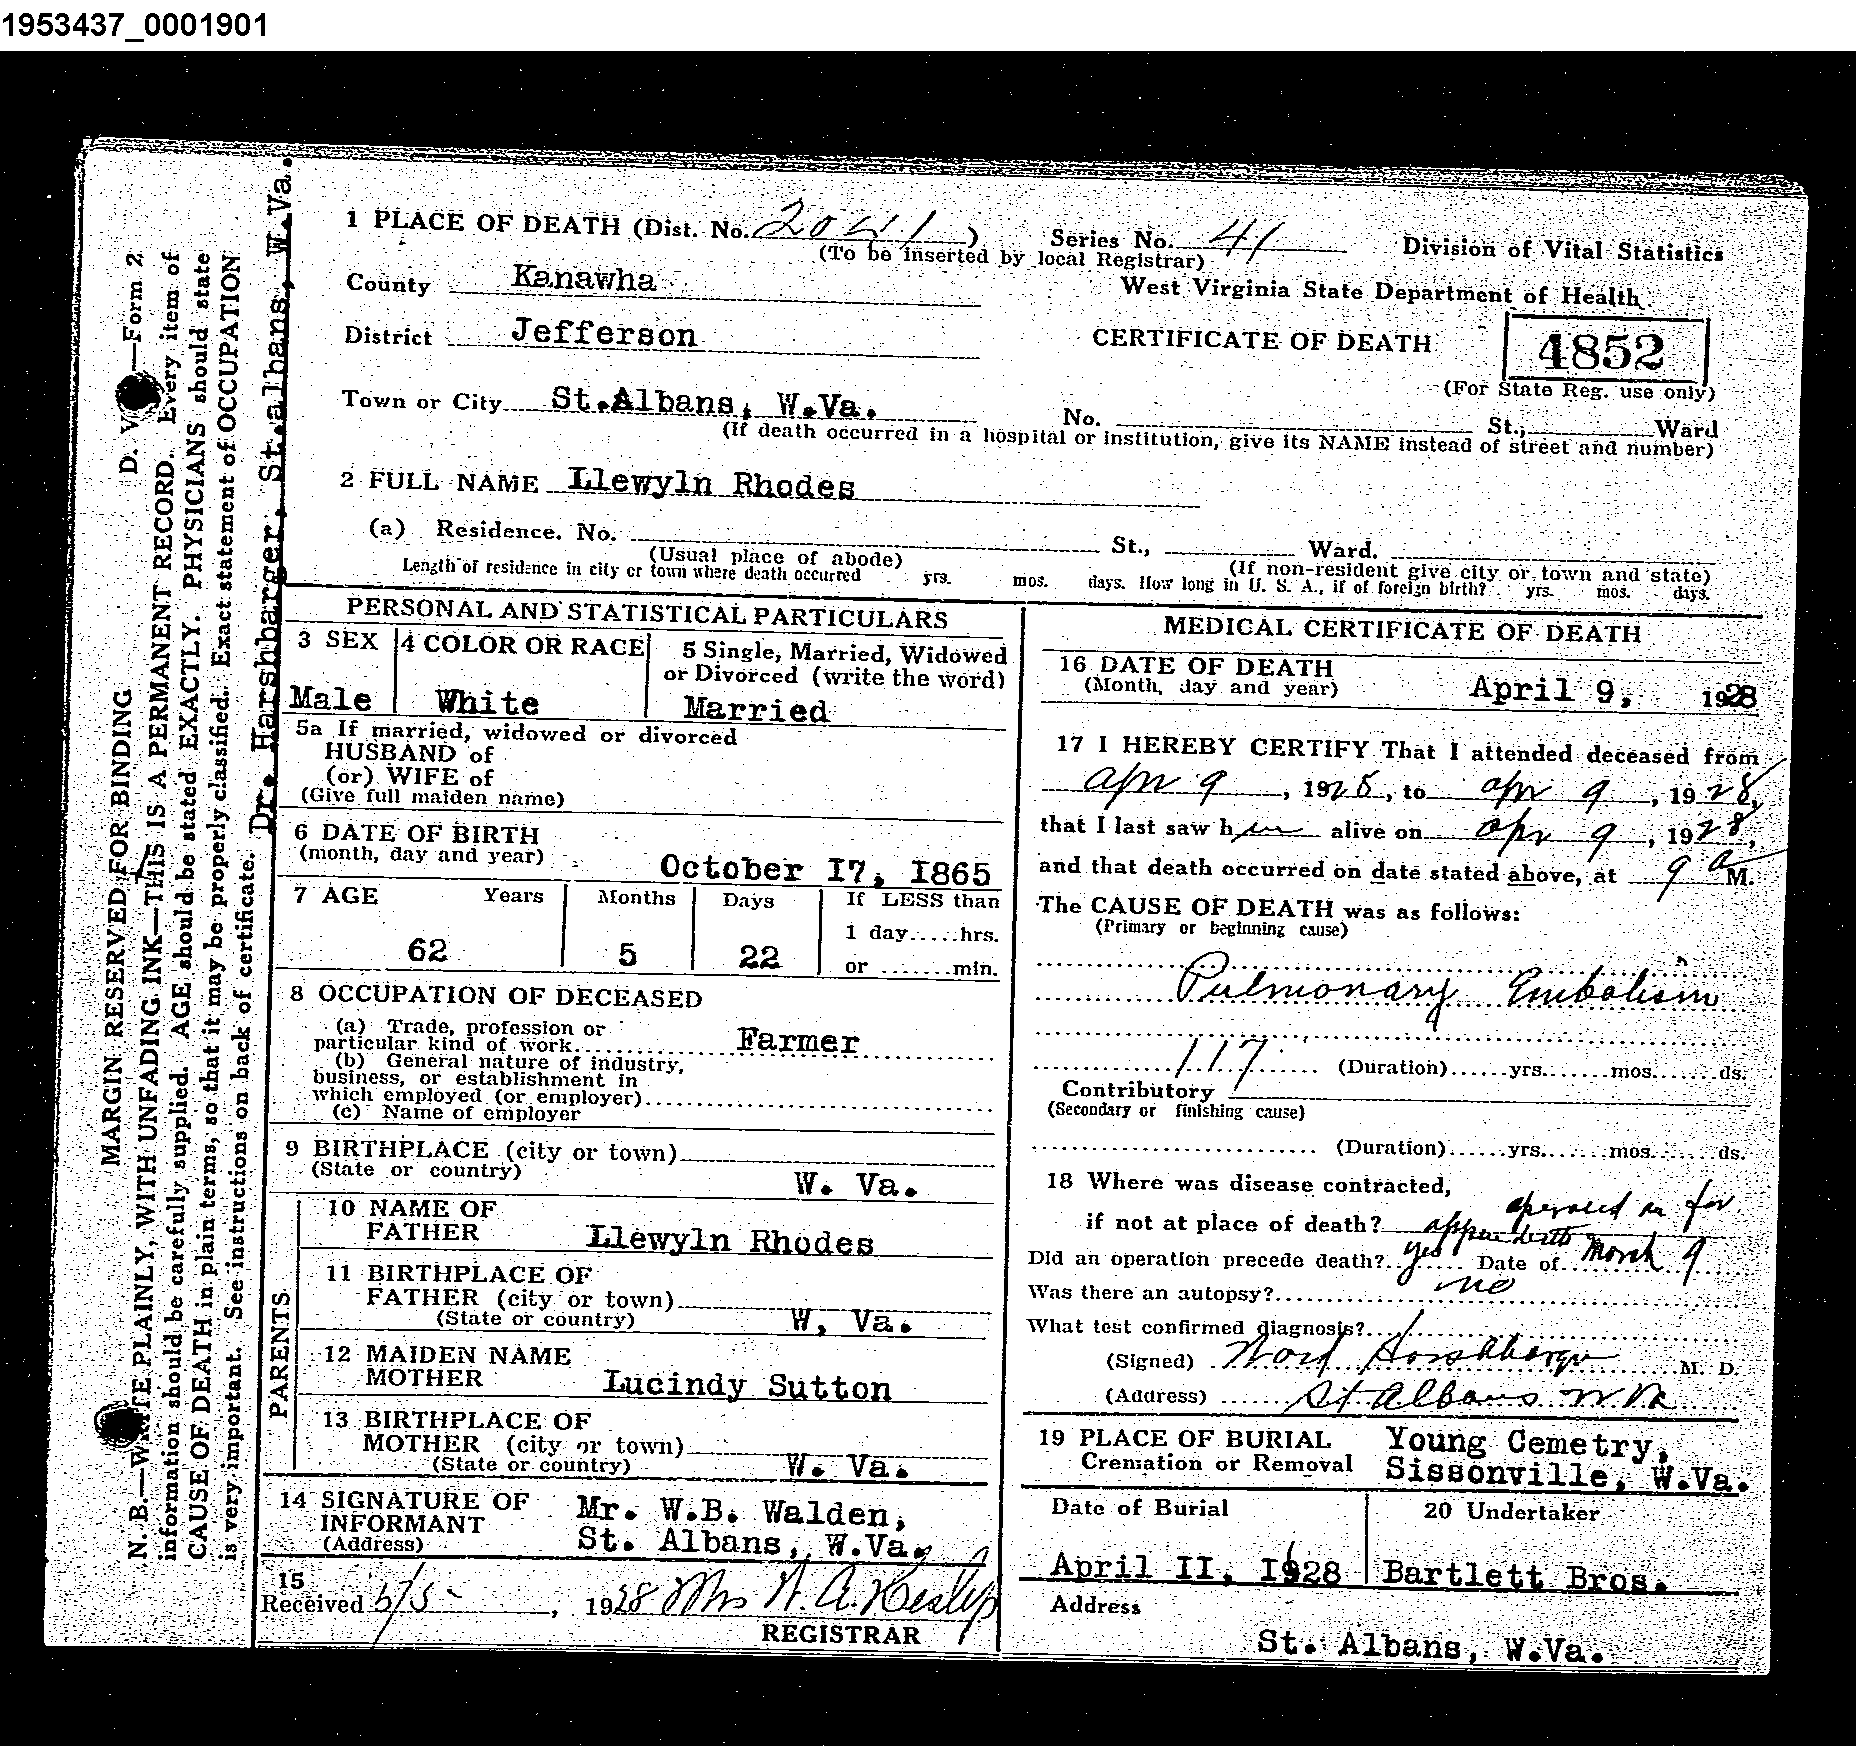 1953437_0001901
1 PLACE OF DEATH (Dist. No. 2041)
Series No. 41
(To be inserted by local Registrar)
Division of Vital Statistics
West Virginia State Department of Health
County Kanawha
District Jefferson
CERTIFICATE OF DEATH
4852
(For State Reg. use only)
Town or City St.Albans, W.Va.
No. St., Ward
(If death occurred in a hospital or institution, give its NAME instead of street and number)
2 FULL NAME Llewyln Rhodes
(a) Residence. No. St., Ward.
(Usual place of abode) (If non-resident give city or town and state)
Length of residence in city or town where death occurred yrs. mos. days. How long in U. S. A., if of foreign birth? yrs. mos. days.
PERSONAL AND STATISTICAL PARTICULARS
3 SEX
Male
4 COLOR OR RACE
White
5 Single, Married, Widowed
or Divorced (write the word)
Married
5a If married, widowed or divorced
HUSBAND of
(or) WIFE of
(Give full maiden name)
6 DATE OF BIRTH
(month, day and year)
October I7, I865
7 AGE Years Months Days If LESS than
1 day.....hrs.
62 5 22
or .......min.
8 OCCUPATION OF DECEASED
(a) Trade, profession or
particular kind of work Farmer
(b) General nature of industry,
business, or establishment in
which employed (or employer)
(c) Name of employer
9 BIRTHPLACE (city or town)
(State or country) W. Va.
PARENTS
10 NAME OF
FATHER Llewyln Rhodes
11 BIRTHPLACE OF
FATHER (city or town)
(State or country) W, Va.
12 MAIDEN NAME
MOTHER Lucindy Sutton
13 BIRTHPLACE OF
MOTHER (city or town)
(State or country) W. Va.
14 SIGNATURE OF
INFORMANT
(Address)
Mr. W.B. Walden,
St. Albans, W.Va.
15
Received 5/5-, 1928 Mrs
REGISTRAR
MEDICAL CERTIFICATE OF DEATH
16 DATE OF DEATH
(Month, day and year) April 9, 1928
17 I HEREBY CERTIFY That I attended deceased from
apr 9, 1928, to apr 9, 1928,
that I last saw him alive on apr 9, 1928,
and that death occurred on date stated above, at 9 a M.
The CAUSE OF DEATH was as follows:
(Primary or beginning cause)
Pulmonary Embolism
117 (Duration)......yrs.......mos.......ds.
Contributory
(Secondary or finishing cause)
(Duration)......yrs.......mos.......ds.
18 Where was disease contracted,
if not at place of death? operated on for
Did an operation precede death? yes Date of March 9
Was there an autopsy? no
What test confirmed diagnosis?
(Signed) Harshbarger M. D.
(Address) St Albans W.Va
19 PLACE OF BURIAL
Cremation or Removal
Young Cemetry,
Sissonville, W.Va.
Date of Burial
April II, I928
20 Undertaker
Bartlett Bros.
Address
St. Albans, W.Va.
D. V. —Form 2
MARGIN RESERVED FOR BINDING
N. B.—WRITE PLAINLY, WITH UNFADING INK—THIS IS A PERMANENT RECORD. Every item of
information should be carefully supplied. AGE should be stated EXACTLY. PHYSICIANS should state
CAUSE OF DEATH in plain terms, so that it may be properly classified. Exact statement of OCCUPATION
is very important. See instructions on back of certificate.
Dr. Harshbarger, St.albans, W.Va.